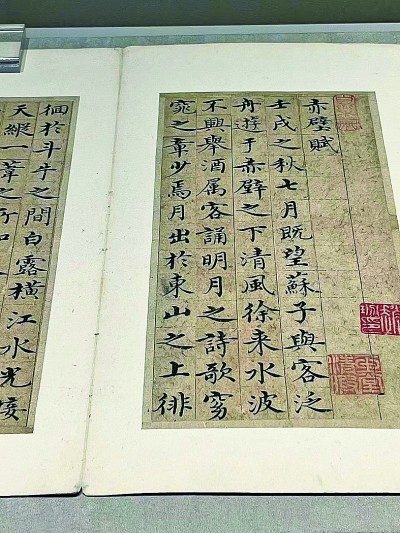 赤壁賦
壬戌之秋七月既望蘇子與客泛
舟遊于赤壁之下清風徐來水波
不興舉酒属客誦明月之詩歌窈
窕之章少焉月出於東山之上徘
徊於斗牛之間白露橫江水光接
天縱一葦之所如